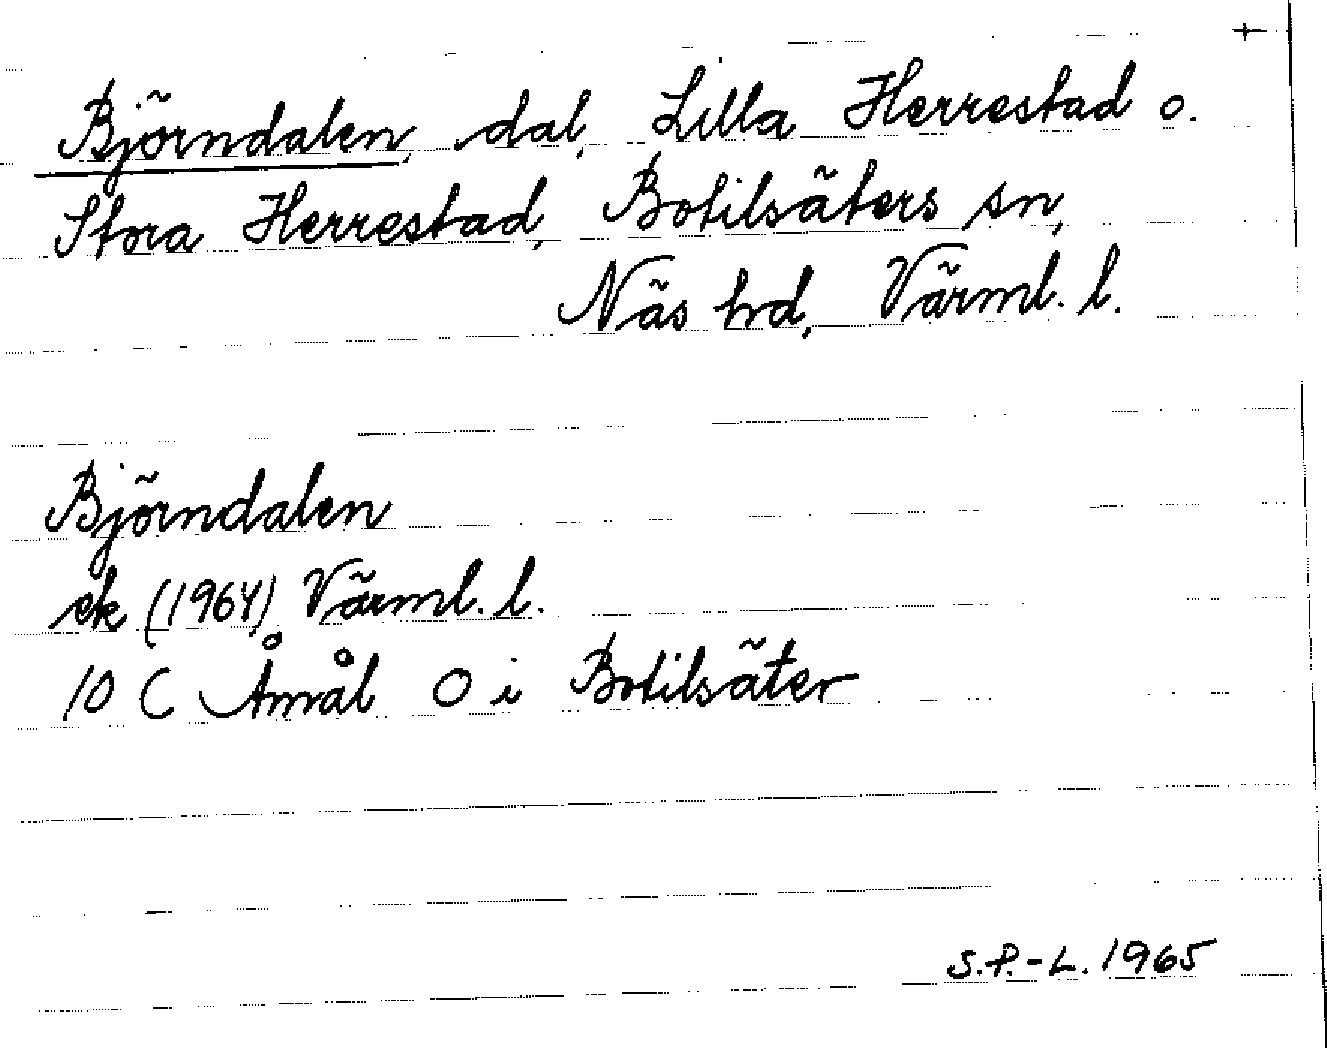 +
Björndalen, dal, Lilla Herrestad o.
Stora Herrestad, Botilsäters sn,
Näs hrd, Värml. l.
Björndalen
ek (1964) Värml. l.
10 C Åmål O i Botilsäter
S.P.-L. 1965